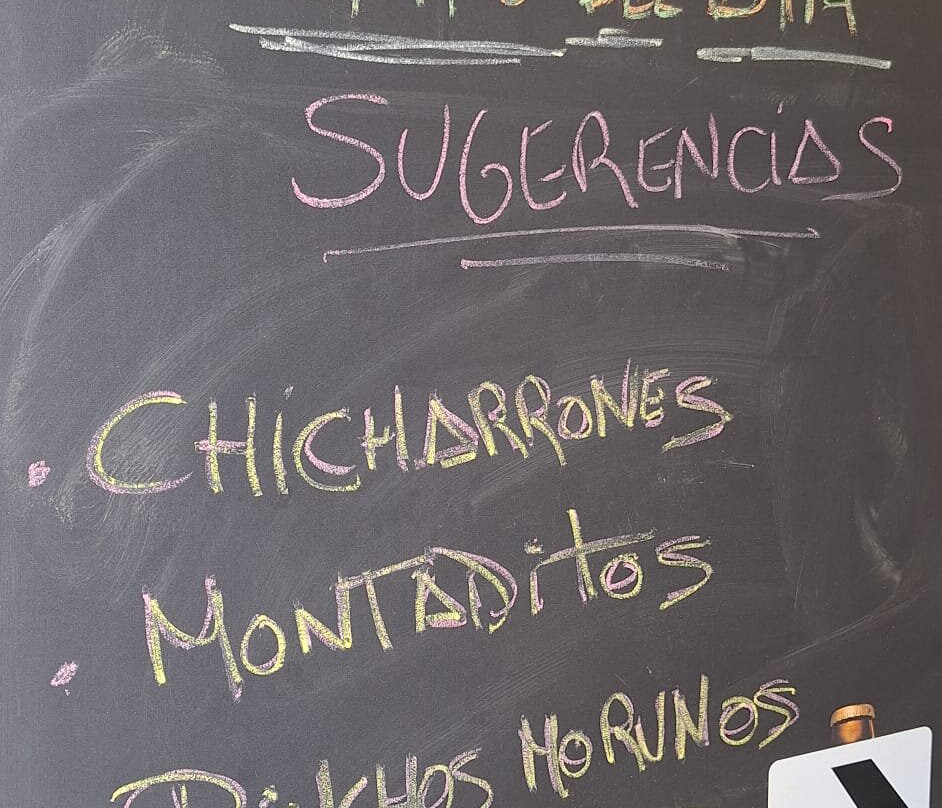 DEL DIA
SUGERENCIAS
· CHICHARRONES
MONTADITOS
· PINCHOS MORUNOS